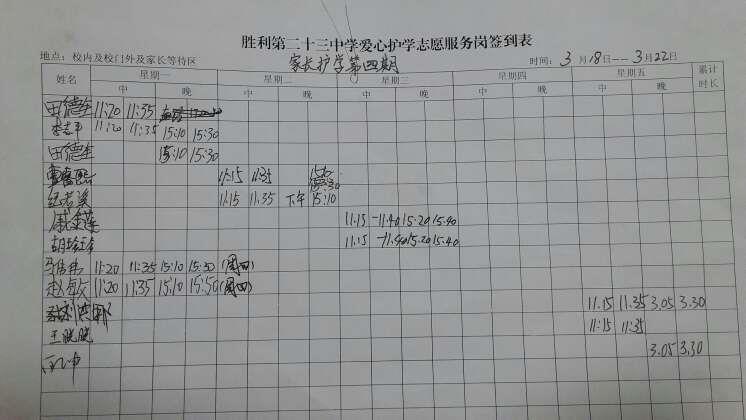 胜利第二十三中学爱心护学志愿服务岗签到表
地点：校内及校门外及家长等待区 家长护学第四期 时间：3月18日---3月22日
姓名 星期一 星期二 星期三 星期四 星期五 累计时长
中 晚 中 晚 中 晚 中 晚 中 晚
田德奎 11:20 11:35
11:20 11:35 15:10 15:30
田德奎 15:10 15:30
11:15 11:35 15:30
11:15 11.35 下午 15:10
11.15 -11.40 15.20 15.40
11.15 -11.40 15.20 15.40
11:20 11:35 15:10 15:50 (周四)
11:20 11:35 15:10 15:50 (周四)
11.15 11.35 3.05 3.30
王晓晓 11:15 11:35
3.05 3.30